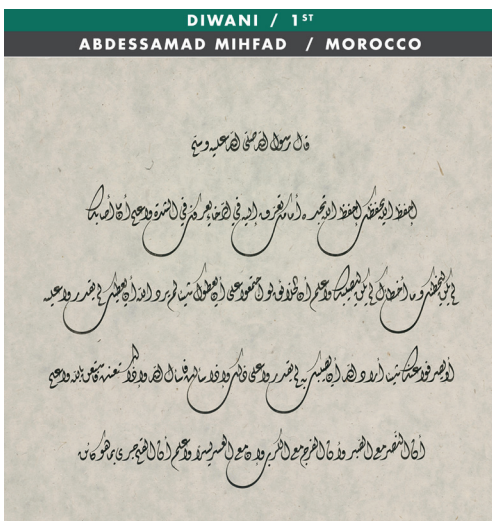 DIWANI / 1ST
ABDESSAMAD MIHFAD / MOROCCO
قال رسول الله صلى الله عليه وسلم
احفظ الله يحفظك احفظ الله تجده أمامك تعرف إليه في الرخاء يعرفك في الشدة واعلم أن ما أصابك
لم يكن ليخطئك وما أخطأك لم يكن ليصيبك واعلم أن الخلائق لو اجتمعوا على أن يعطوك شيئا لم يرد الله أن يعطيك لم يقدروا عليه
أو يصرفوا عنك شيئا أراد الله أن يصيبك به لم يقدروا على ذلك وإذا سألت فاسأل الله وإذا استعنت فاستعن بالله واعلم
أن النصر مع الصبر وأن الفرج مع الكرب وإن مع العسر يسرا واعلم أن القلم جرى بما هو كائن